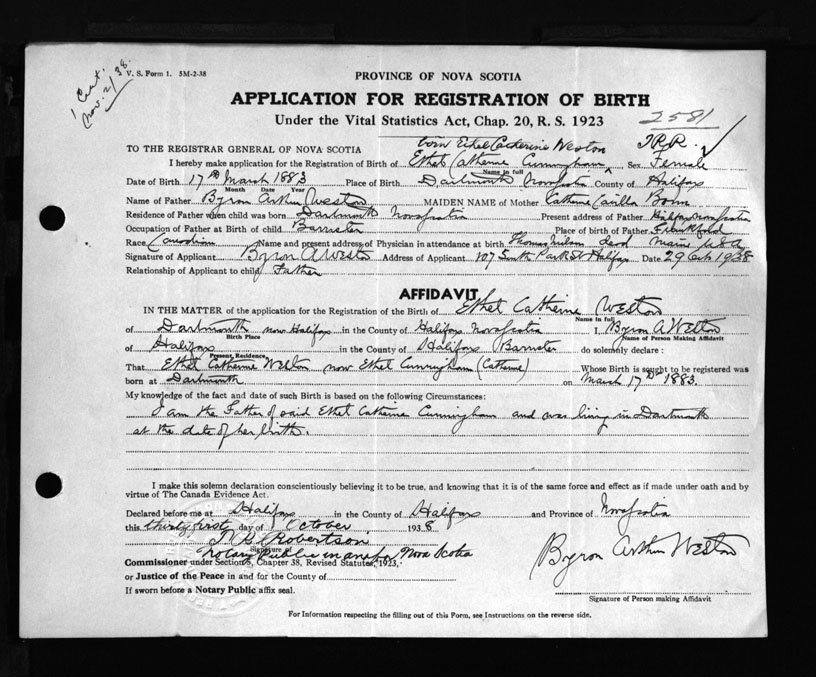 1 Cert.
Nov. 2/38
V. S. Form 1. 5M-2-38
PROVINCE OF NOVA SCOTIA
APPLICATION FOR REGISTRATION OF BIRTH
Under the Vital Statistics Act, Chap. 20, R. S. 1923
2581
born Ethel Catherine Weston
TO THE REGISTRAR GENERAL OF NOVA SCOTIA
I hereby make application for the Registration of Birth of Ethel Catherine Cunningham Sex Female
Name in full
Date of Birth 17th March 1883 Place of Birth Dartmouth Nova Scotia County of Halifax
Month Date Year
Name of Father Byron Arthur Weston MAIDEN NAME of Mother Catherine
Residence of Father when child was born Dartmouth Nova Scotia Present address of Father Halifax Nova Scotia
Occupation of Father at Birth of child Barrister Place of birth of Father
Race Canadian Name and present address of Physician in attendance at birth Thomas Milsom dead Maine U.S.A
Signature of Applicant Byron A Weston Address of Applicant 107 South Park St Halifax Date 29 Oct 1938
Relationship of Applicant to child Father
AFFIDAVIT
IN THE MATTER of the application for the Registration of the Birth of Ethel Catherine Weston
Name in full
of Dartmouth now Halifax in the County of Halifax Nova Scotia I, Byron A Weston
Birth Place Name of Person Making Affidavit
of Halifax in the County of Halifax Barrister do solemnly declare :
Present Residence
That Ethel Catherine Weston now Ethel Cunningham (Catherine) Whose Birth is sought to be registered was
born at Dartmouth on March 17th 1883.
My knowledge of the fact and date of such Birth is based on the following Circumstances:
I am the Father of said Ethel Catherine Cunningham and was living in Dartmouth
at the date of her birth.
I make this solemn declaration conscientiously believing it to be true, and knowing that it is of the same force and effect as if made under oath and by
virtue of The Canada Evidence Act.
Declared before me at Halifax in the County of Halifax and Province of Nova Scotia
this thirty first day of October 1938
Robertson
Signature of
Notary Public in and for Nova Scotia
Byron Arthur Weston
Commissioner under Section 5, Chapter 38, Revised Statutes, 1923,
or Justice of the Peace in and for the County of
If sworn before a Notary Public affix seal.
Signature of Person making Affidavit
For Information respecting the filling out of this Form, see Instructions on the reverse side.